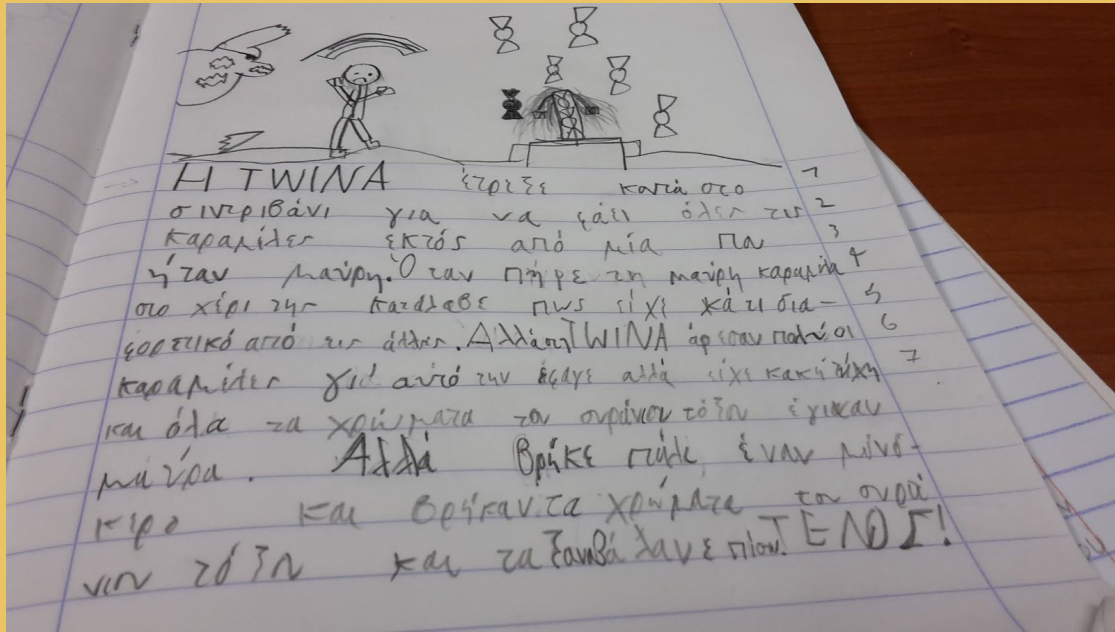 Η TWINA έτρεξε κατά στο 1
σιντριβάνι για να φάει όλες τις 2
καραμέλες εκτός από μία που 3
ήταν μαύρη. Όταν πήρε τη μαύρη καραμέλα 4
στο χέρι της κατάλαβε πως είχε κάτι δια- 5
φορετικό από τις άλλες. Αλλά τη TWINA άρεσαν πολύ οι 6
καραμέλες γι' αυτό την έφαγε αλλά είχε κακή τύχη 7
και όλα τα χρώματα του ουράνιου τόξου έγιναν
μαύρα. Αλλά βρήκε πάλι έναν μονό-
κερο και βρήκαν τα χρώματα του ουρά
νιου τόξου και τα ξαναβάλανε πίσω! ΤΕΛΟΣ!